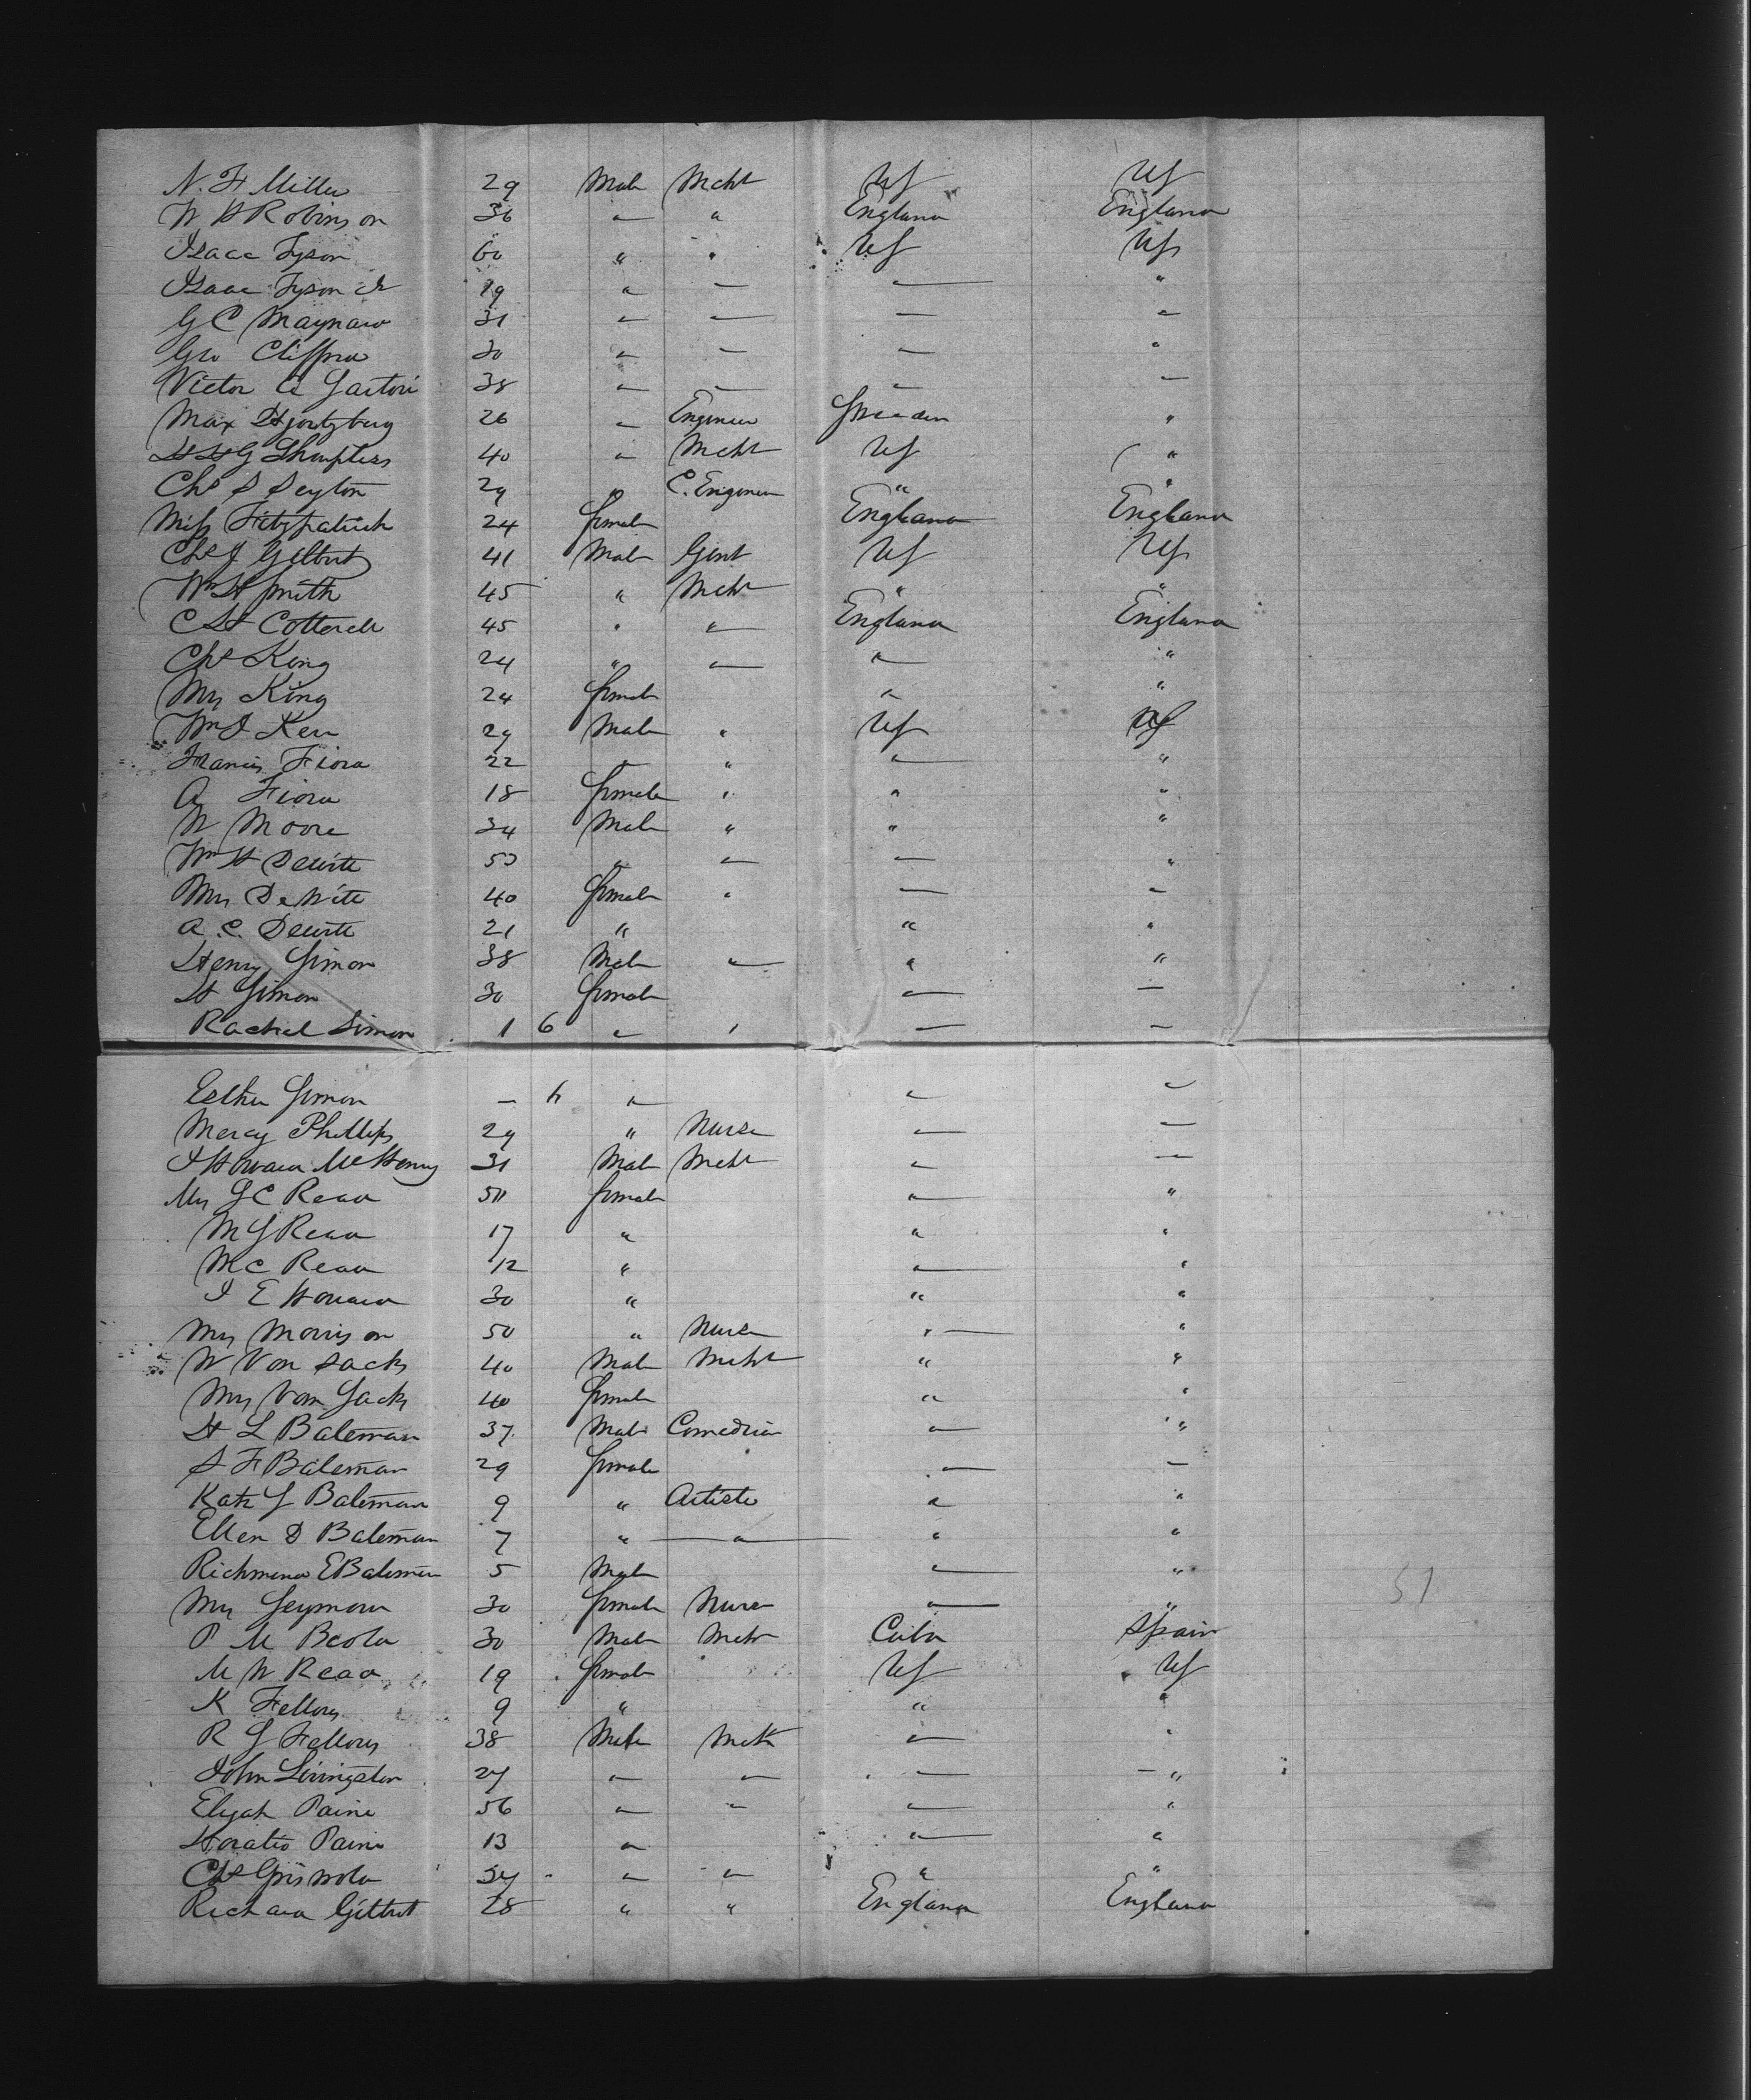 N. F Miller 29 Male Mcht US US
W H Robinson 36 " " England England
Isaac Tyson 60 " " US US
Isaac Tyson Jr 19 " " " "
G C Maynard 31 " " " "
Geo Clifford 30 " " " "
Victor A Sartori 38 " " " "
Max Hjortzberg 26 " Engineer Sweden "
40 " Mcht US "
Chs S Seyton 29 " C. Engineer " "
Miss Fitzpatrick 24 female England England
Chs J Gilbert 41 Male Gent US US
Wm H Smith 45 " Mcht " "
C H Cotterell 45 " " England England
Chs King 24 " " " "
Mrs King 24 female " "
Wm J Kerr 29 Male " US US
Francis Fiora 22 " " " "
A Fiora 18 female " " "
W Moore 34 Male " " "
Wm H Dewitt 50 " " " "
Mrs DeWitt 40 female " " "
A. C. Dewitt 21 " " "
Henry Simon 38 Male " " "
H Simon 30 female " "
Rachel Simon 1 6 " " " "
Esther Simon – 4 " " "
Mercy Phillips 29 " Nurse " "
J Howard McHenry 31 Male Mcht " "
Mrs S C Read female " "
M S Read 17 " " "
M C Read 12 " " "
J E Howard 30 " " "
Mrs Morrison 50 " Nurse " "
W Von Sacks 40 Male Mcht " "
Mrs Von Sacks 40 female " "
H L Bateman 37 Male Comedian " "
S F Bateman 29 female " "
Kate J Bateman 9 " Artiste " "
Ellen D Bateman 7 " " " "
Richmond E Bateman 5 Male " "
Mrs Seymour 30 female Nurse " "
P M Beola 30 Male Mcht Cuba Spain
M W Read 19 female US US
K Fellows 9 " " "
R S Fellows 38 Male Mcht " "
John Livingston 27 " " " "
Elijah Paine 56 " " " "
Horatio Paine 13 " " "
Chs Griswold 34 " " " "
Richard Gilbert 28 " " England England
51